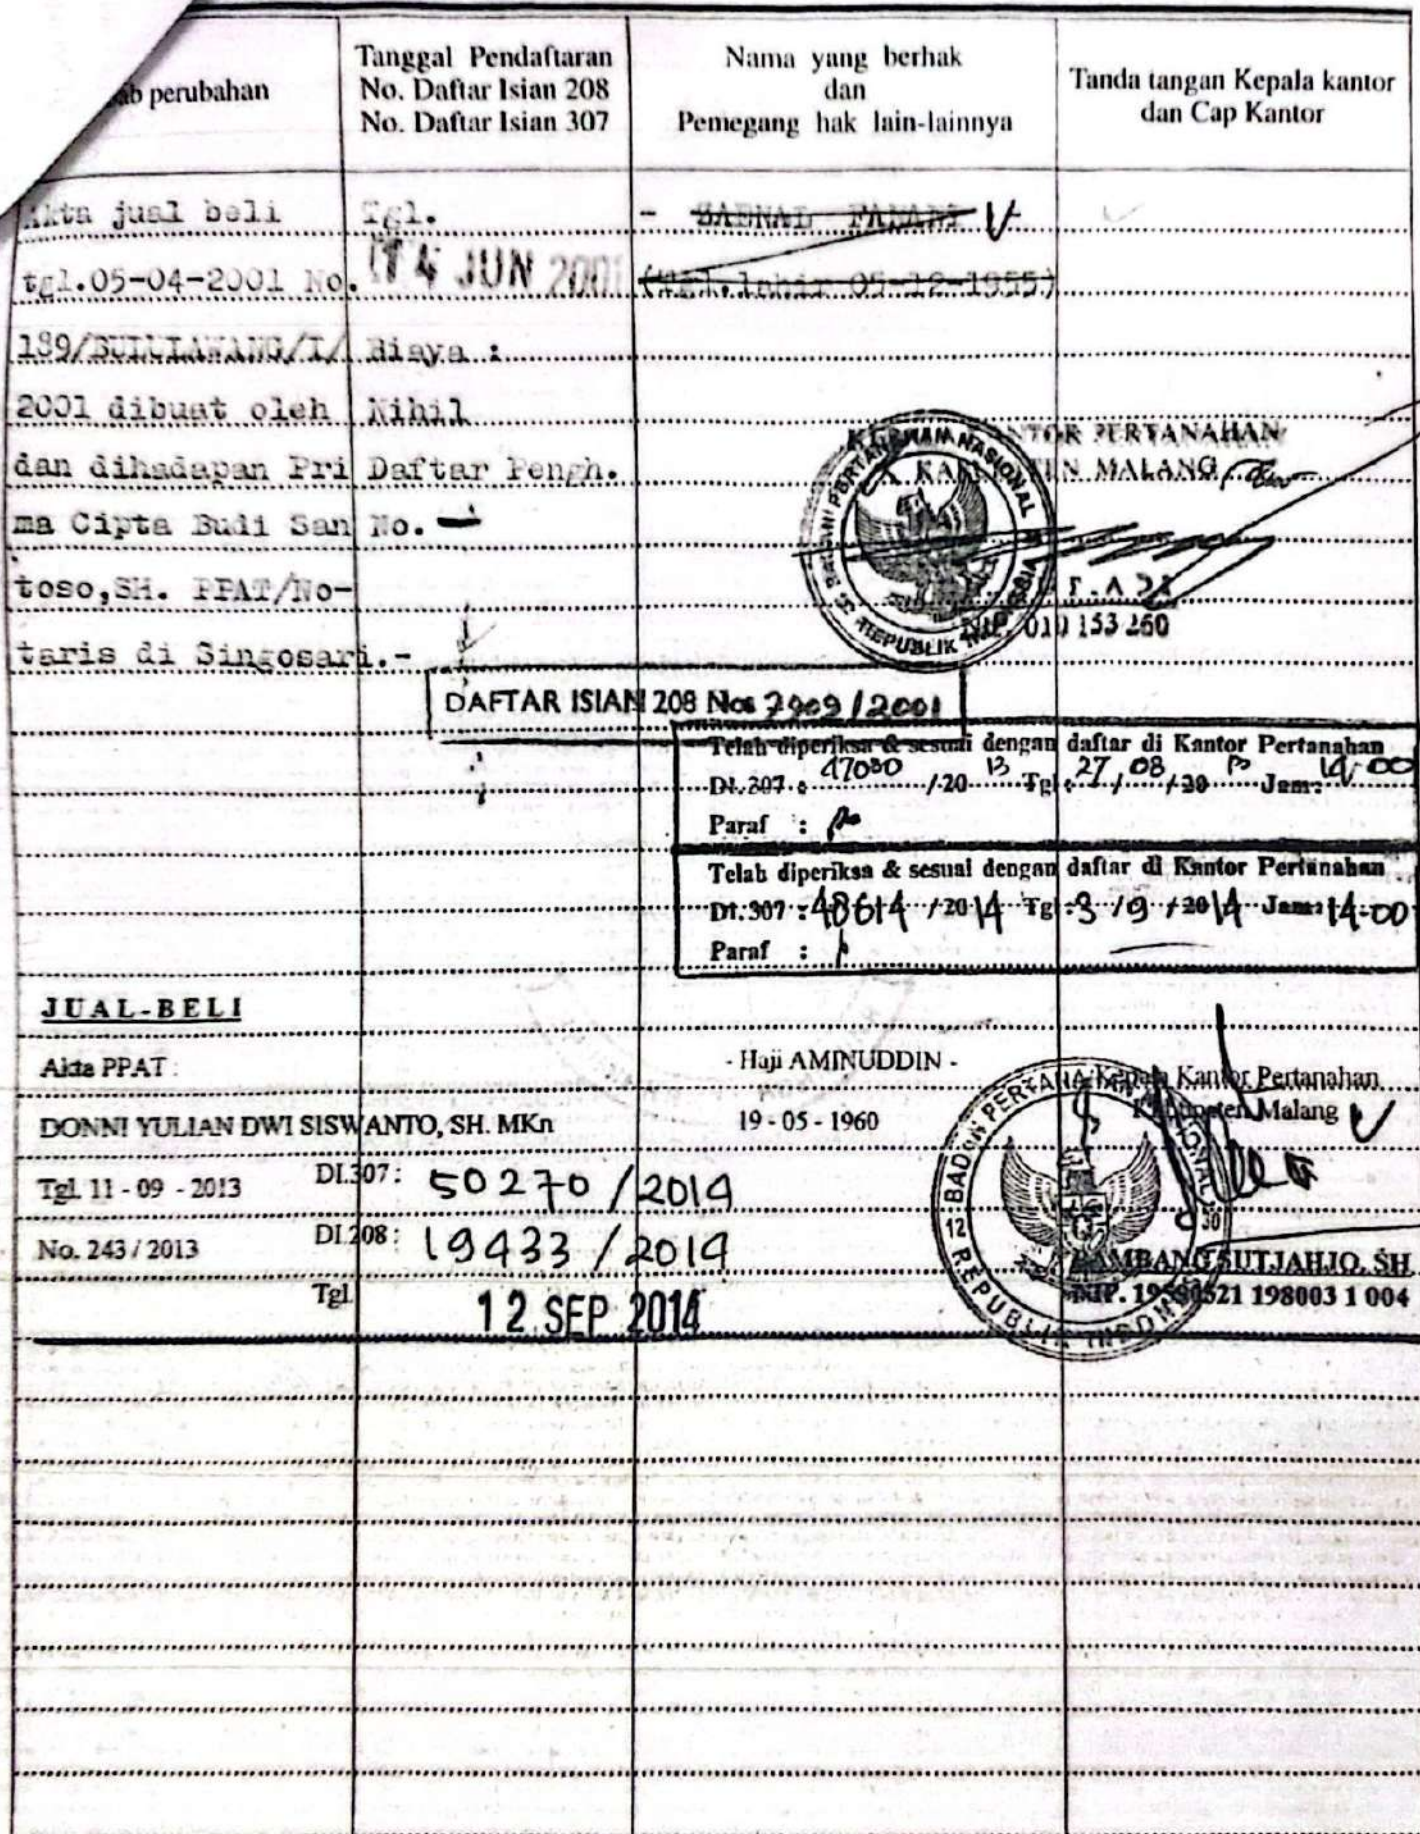 ab perubahan
Tanggal Pendaftaran
No. Daftar Isian 208
No. Daftar Isian 307
Nama yang berhak
dan
Pemegang hak lain-lainnya
Tanda tangan Kepala kantor
dan Cap Kantor
Akta jual beli
tgl.05-04-2001 No.
189/BULULAWANG/I/
2001 dibuat oleh
dan dihadapan Pri
ma Cipta Budi San
toso,SH. PPAT/No-
taris di Singosari.-
Tgl.
14 JUN 2001
Biaya :
Nihil
Daftar Pengh.
No. -
(Tgl.lahir 05-12-1955)
KANTOR PERTANAHAN
KABUPATEN MALANG
BADAN PERTANAHAN NASIONAL
REPUBLIK INDONESIA
NIP. 010 153 260
DAFTAR ISIAN 208 No: 7909 / 2001
Telah diperiksa & sesuai dengan daftar di Kantor Pertanahan
DI. 307 : 47030 /20 13 Tgl : 27 / 08 /20 13 Jam: 14.00
Paraf :
Telah diperiksa & sesuai dengan daftar di Kantor Pertanahan
DI. 307 : 48614 /2014 Tgl : 3 / 9 /2014 Jam: 14-00
Paraf :
JUAL-BELI
Akta PPAT :
DONNI YULIAN DWI SISWANTO, SH. MKn
Tgl. 11 - 09 - 2013
No. 243 / 2013
DI.307 : 50270 / 2014
DI.208 : 19433 / 2014
Tgl. 12 SEP 2014
- Haji AMINUDDIN -
19 - 05 - 1960
Kepala Kantor Pertanahan
Kabupaten Malang
BADAN PERTANAHAN NASIONAL
12
30
REPUBLIK INDONESIA
BAMBANG SUTJAHJO, SH
198003 1 004